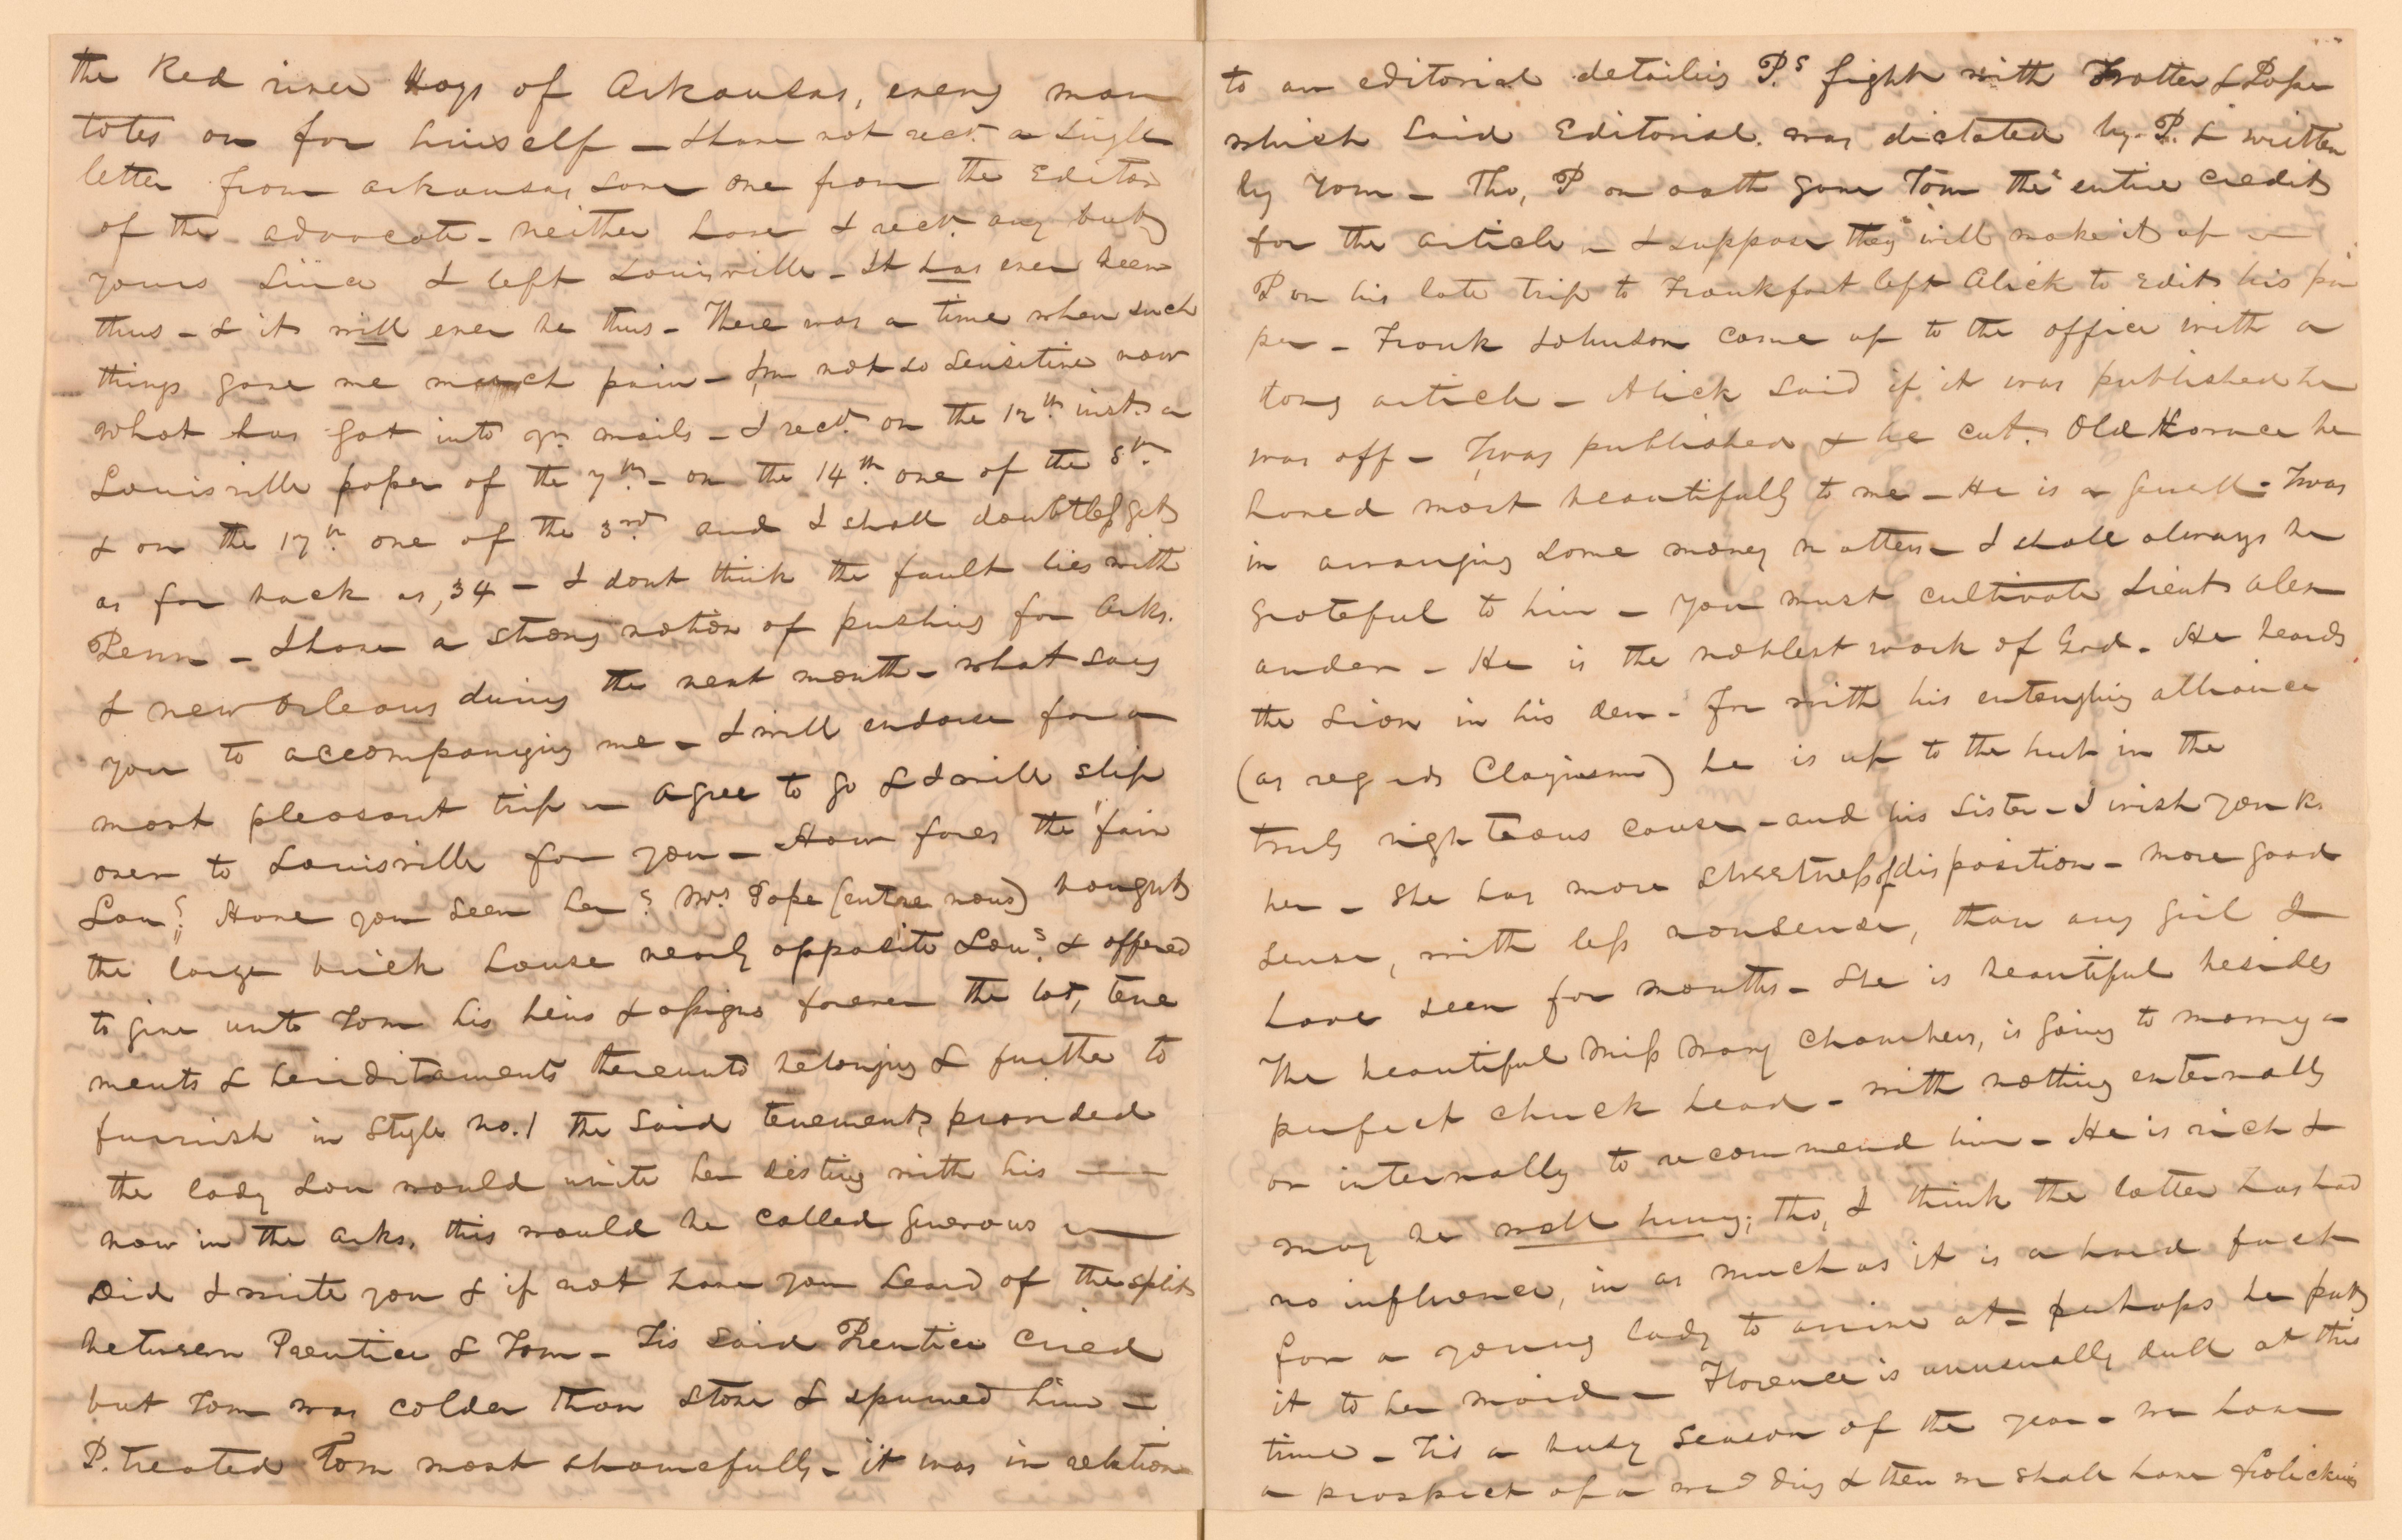 the Red river Hogs of Arkansas, every man
totes on for himself – I have not rect. a single
letter from arkansas save one from the Editor
of the advocate – neither have I rect. any but
yours since I left Louisville – It has ever been
thus – & it will ever be thus – There was a time when such
things gave me much pain – I'm not so sensitive now
what has got into yr. mails – I rect. on the 12th. inst. a
Louisville paper of the 7th. – on the 14th. one of the 5th.
& on the 17th. one of the 3rd. and I shall doubtless get
as far back as, 34 – I dont think the fault lies with
Penn – I have a strong notion of pushing for Arks.
& new Orleans during the next month – what say
you to accompanying me – I will endorse for a
most pleasant trip – agree to go & I will slip
over to Louisville for you – How fares the "fair
Lou"? Have you seen her? Mrs Pope (entre nous) bought
the large brick house nearly opposite Lou's. & offered
to give unto Tom his heirs & assigns forever the lot, tene
ments & heriditaments thereunto belonging & further to
furnish in Style No. 1 the said tenement, provided
the lady Lou would unite her destiny with his —
now in the Arks, this would be called generous —
Did I write you & if not have you heard of the split
between Prentice & Tom – Tis said Prentice cried
but Tom was colder than stone & spurned him –
P. treated Tom most shamefully – it was in relation
to an editorial detailing P.s fight with Trotter & Pope
which said Editorial. was dictated by P. & written
by Tom – Tho, P on oath gave Tom the entire credit
for the article – I suppose they will make it up –
P on his late trip to Frankfort left Alick to Edit his pa
per – Frank Johnson came up to the office with a
long article – Alick said if it was published he
was off – Twas published & he cut. Old Horace be
haved most beautifully to me – He is a jewell – Twas
in arranging some money matters – I shall always be
grateful to him – you must cultivate Lieut Alex
ander – He is the noblest work of God. He beards
the Lion in his den – For with his entangling alliance
(as regards Clayism) he is up to the hub in the
truly righteous cause – and his sister – I wish you k.
her – She has more sweetness of disposition – more good
sense, with less nonsense, than any girl I
have seen for months – She is beautiful besides
The beautiful Miss Mary Chambers, is going to marry a
perfect chuck head – with nothing externally
or internally to recommend him – He is rich &
may be well hung; tho, I think the latter has had
no influence, in as much as it is a hard fact
for a young lady to arrive at – perhaps he puts
it to her maid – Florence is unusually dull at this
time – Tis a busy season of the year – we have
a prospect of a wedding & then we shall have frolicking